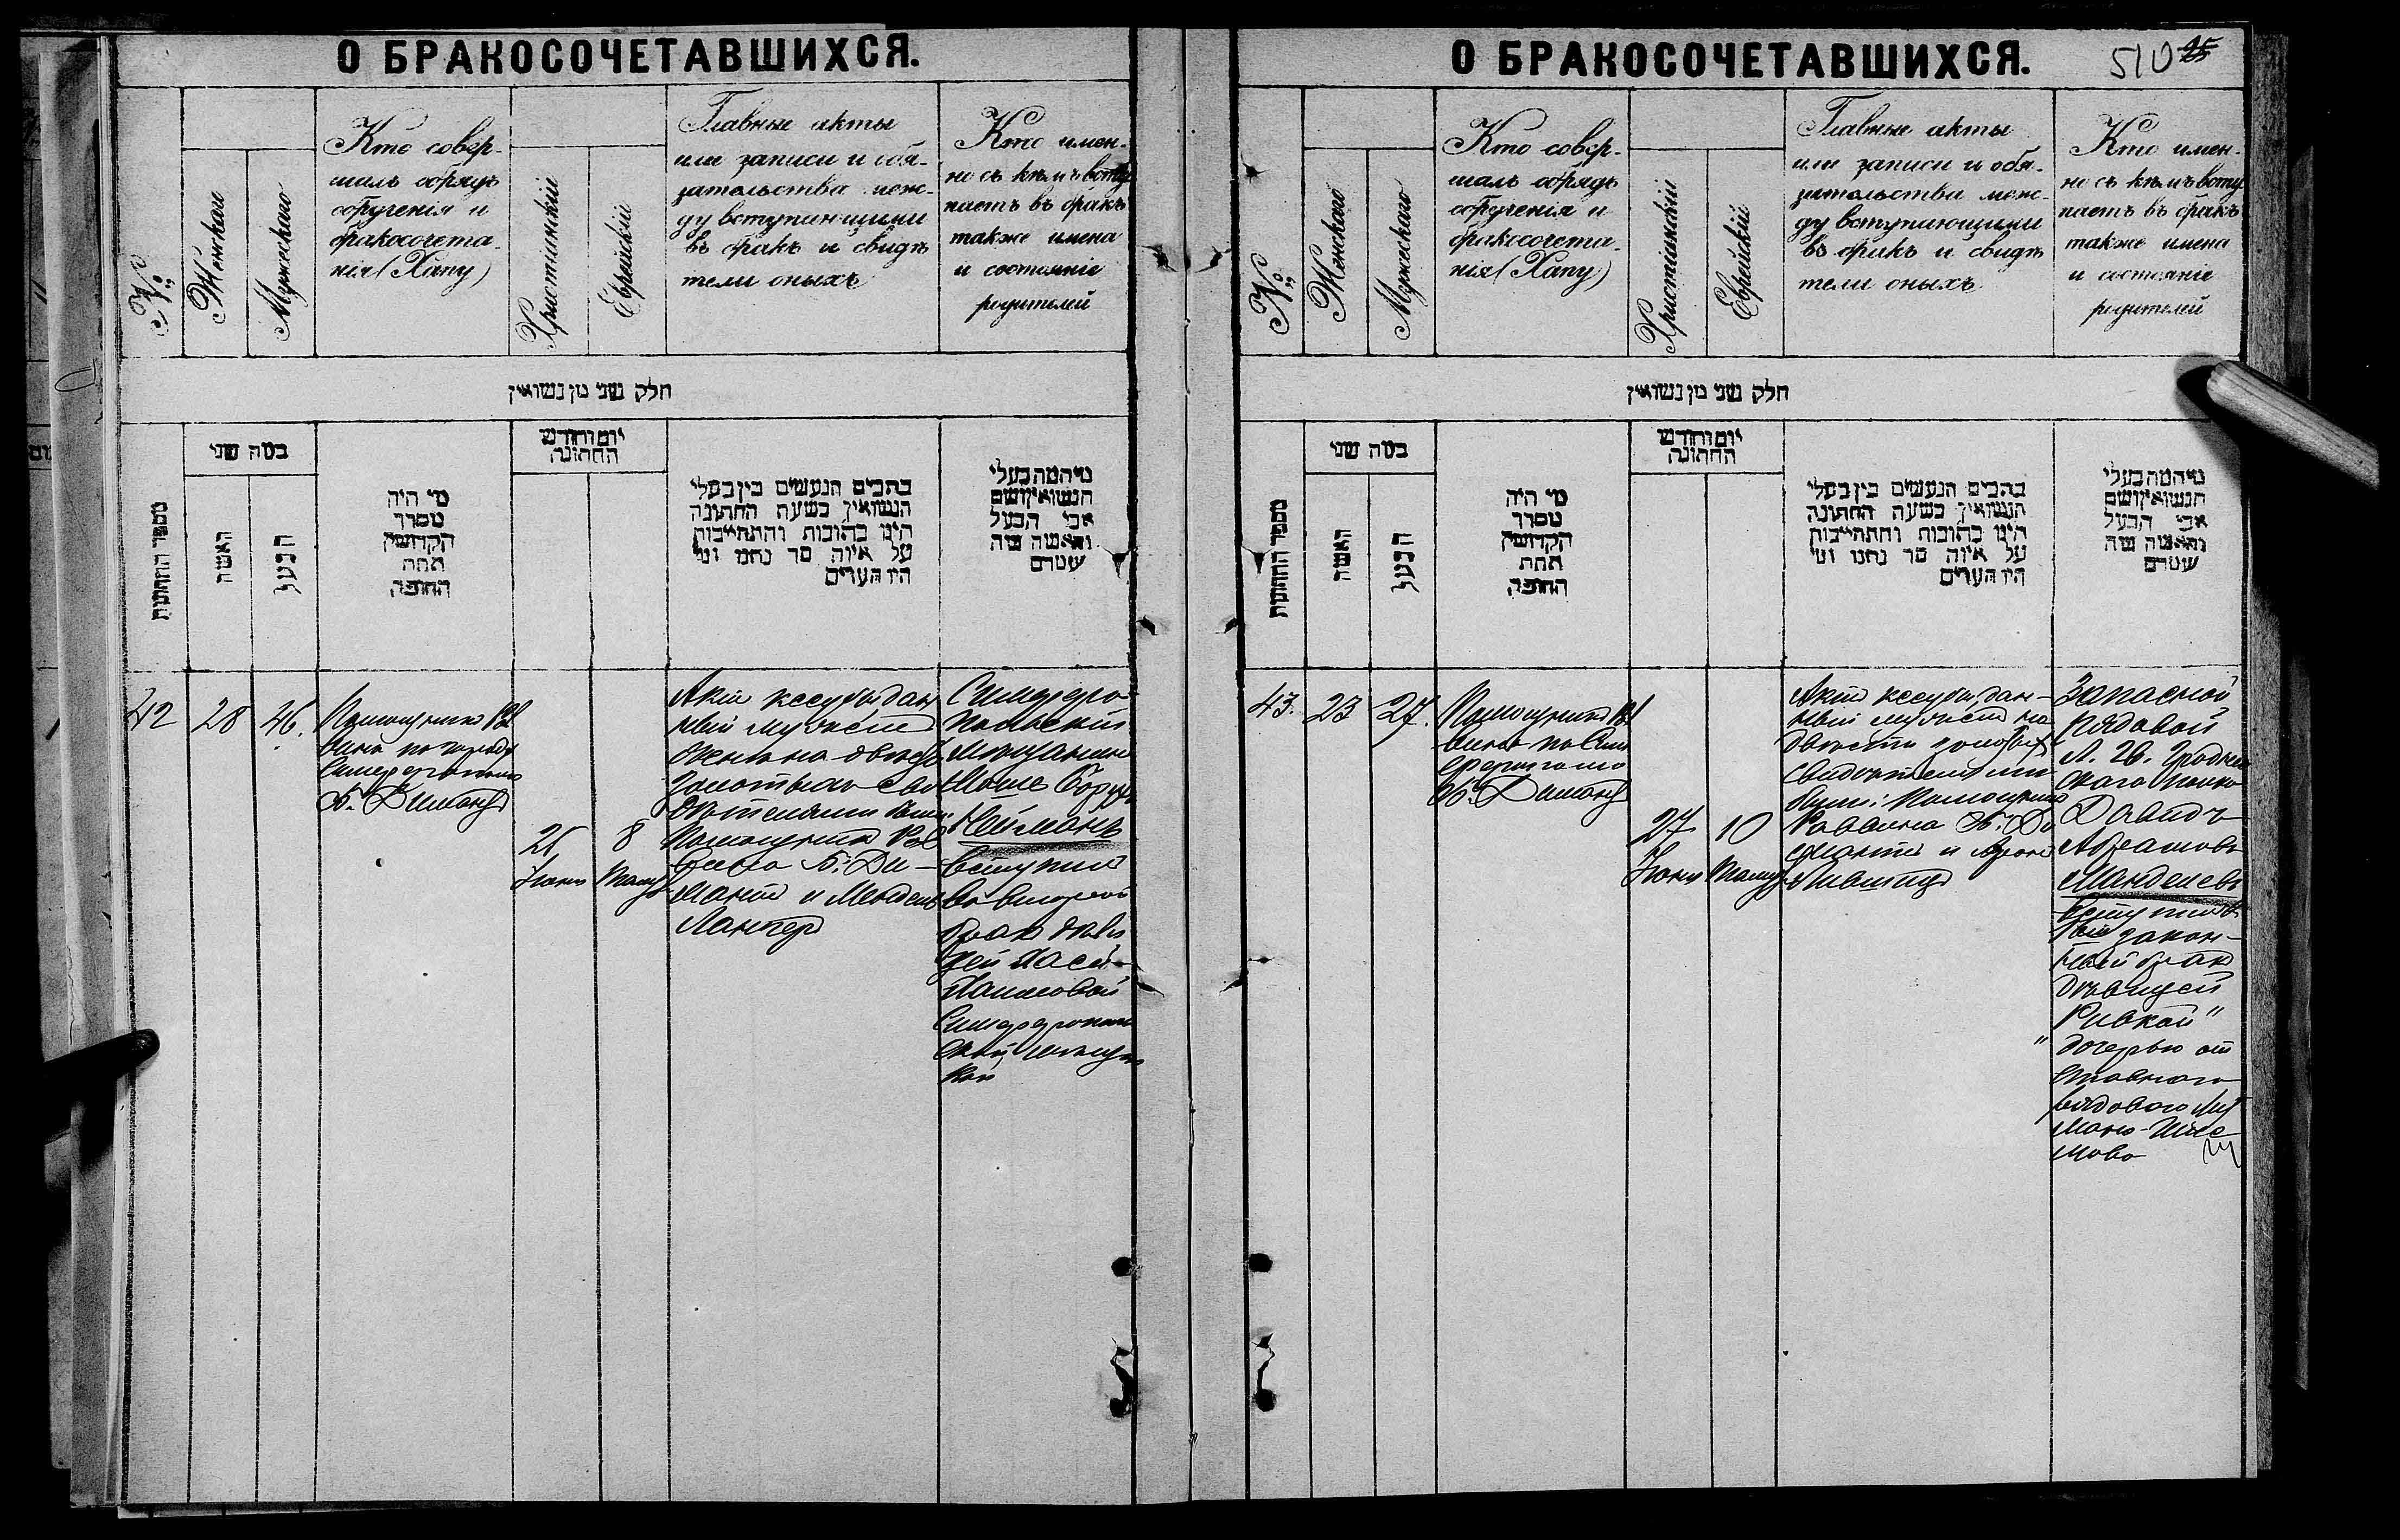 О БРАКОСОЧЕТАВШИХСЯ.
№
Женскаго
Мужескаго
Кто совер-
шалъ обрядъ
обрученія и
бракосочета-
нія (Хапу)
Христіанскій
Еврейскій
Главные акты
или записи и обя-
зательства меж-
ду вступающими
въ бракъ и свидѣ
тели оныхъ
Кто имен-
но съ кѣмъ всту
паетъ въ бракъ
также имена
и состояніе
родителей
חלק שני מן נשואין
מספר החתונות
כמה שני
האשה
הבעל
מי היה
מסדר
הקדושין
תחת
החופה
יום וחודש
החתונה
כתבים הנעשים בין בעלי
הנשואין בשעת החתונה
היינו כתובות והתחייבות
על איזה סך נתנו ומי
היו העדים
מי המה בעלי
הנשואין ושם
אבי הבעל
והאשה ומה
עטרם
42
28
46.
Помощникъ Рав
вина по городу
Симферополю
Б. Димантъ
26
Іюня
8
Тамуз
Актъ кесубы дан
ный мужемъ
жене на двѣсти
золотыхъ сви
дѣтелями были:
Помощникъ Рав
вина Б. Ди-
мантъ и Мендель
Ланцер
Симферо
польскій
мѣщанинъ
Моше Борух
Нейманъ
вступил
во второй
брак с дѣви
цей Хасей
Хаимовой
Симферополь
ской мѣщан
кой
О БРАКОСОЧЕТАВШИХСЯ.
510
№
Женскаго
Мужескаго
Кто совер-
шалъ обрядъ
обрученія и
бракосочета-
нія (Хапу)
Христіанскій
Еврейскій
Главные акты
или записи и обя-
зательства меж-
ду вступающими
въ бракъ и свидѣ
тели оныхъ
Кто имен-
но съ кѣмъ всту
паетъ въ бракъ
также имена
и состояніе
родителей
חלק שני מן נשואין
מספר החתונות
כמה שני
האשה
הבעל
מי היה
מסדר
הקדושין
תחת
החופה
יום וחודש
החתונה
כתבים הנעשים בין בעלי
הנשואין בשעת החתונה
היינו כתובות והתחייבות
על איזה סך נתנו ומי
היו העדים
מי המה בעלי
הנשואין ושם
אבי הבעל
והאשה ומה
עטרם
43.
23
27.
Помощникъ Рав
вина по Сим
ферополю
Б. Димантъ
27
Іюня
10
Тамуз
Актъ кесубы дан-
ный мужемъ на
двѣсти золотых
свидѣтелями
были: Помощникъ
Раввина Б. Ди
мантъ и Арон
Лившиц
Запасной
рядовой
Л. Гв. Гроднен
скаго полка
Давидъ
Абрамовъ
Манделевъ
вступилъ въ
1ый закон-
ный брак
с дѣвицей
Ривкой"
" дочерью от
ставного
рядового